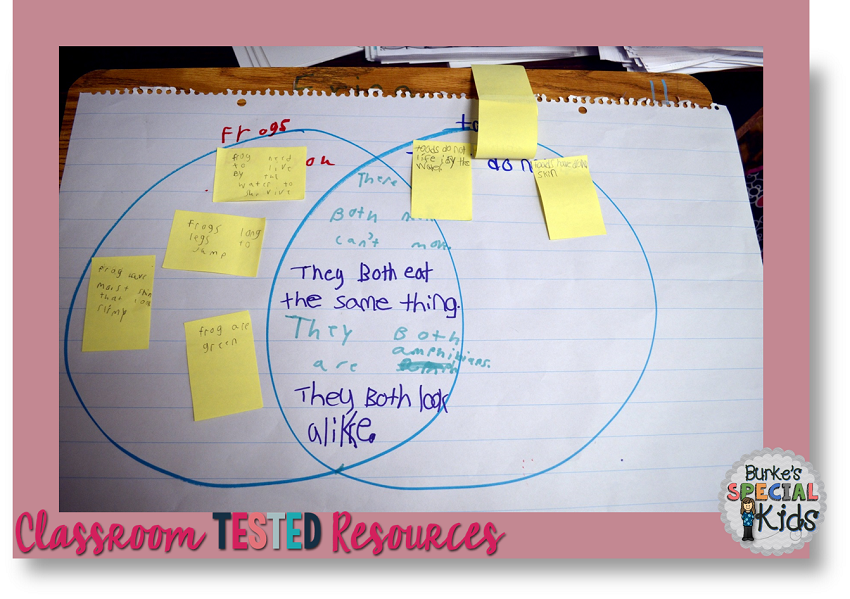 Frogs
frog need
to live
By the
water to
on
frogs long
legs to
Jump
frog have
moist skin
that
frog are
green
There
Both
can't
They Both eat
the same thing.
They Both
amphibians.
are
They Both look
alike.
to
toads do not
life by the
water
do
toads have
skin
Classroom TESTED Resources
BURKE'S
SPECIAL
Kids